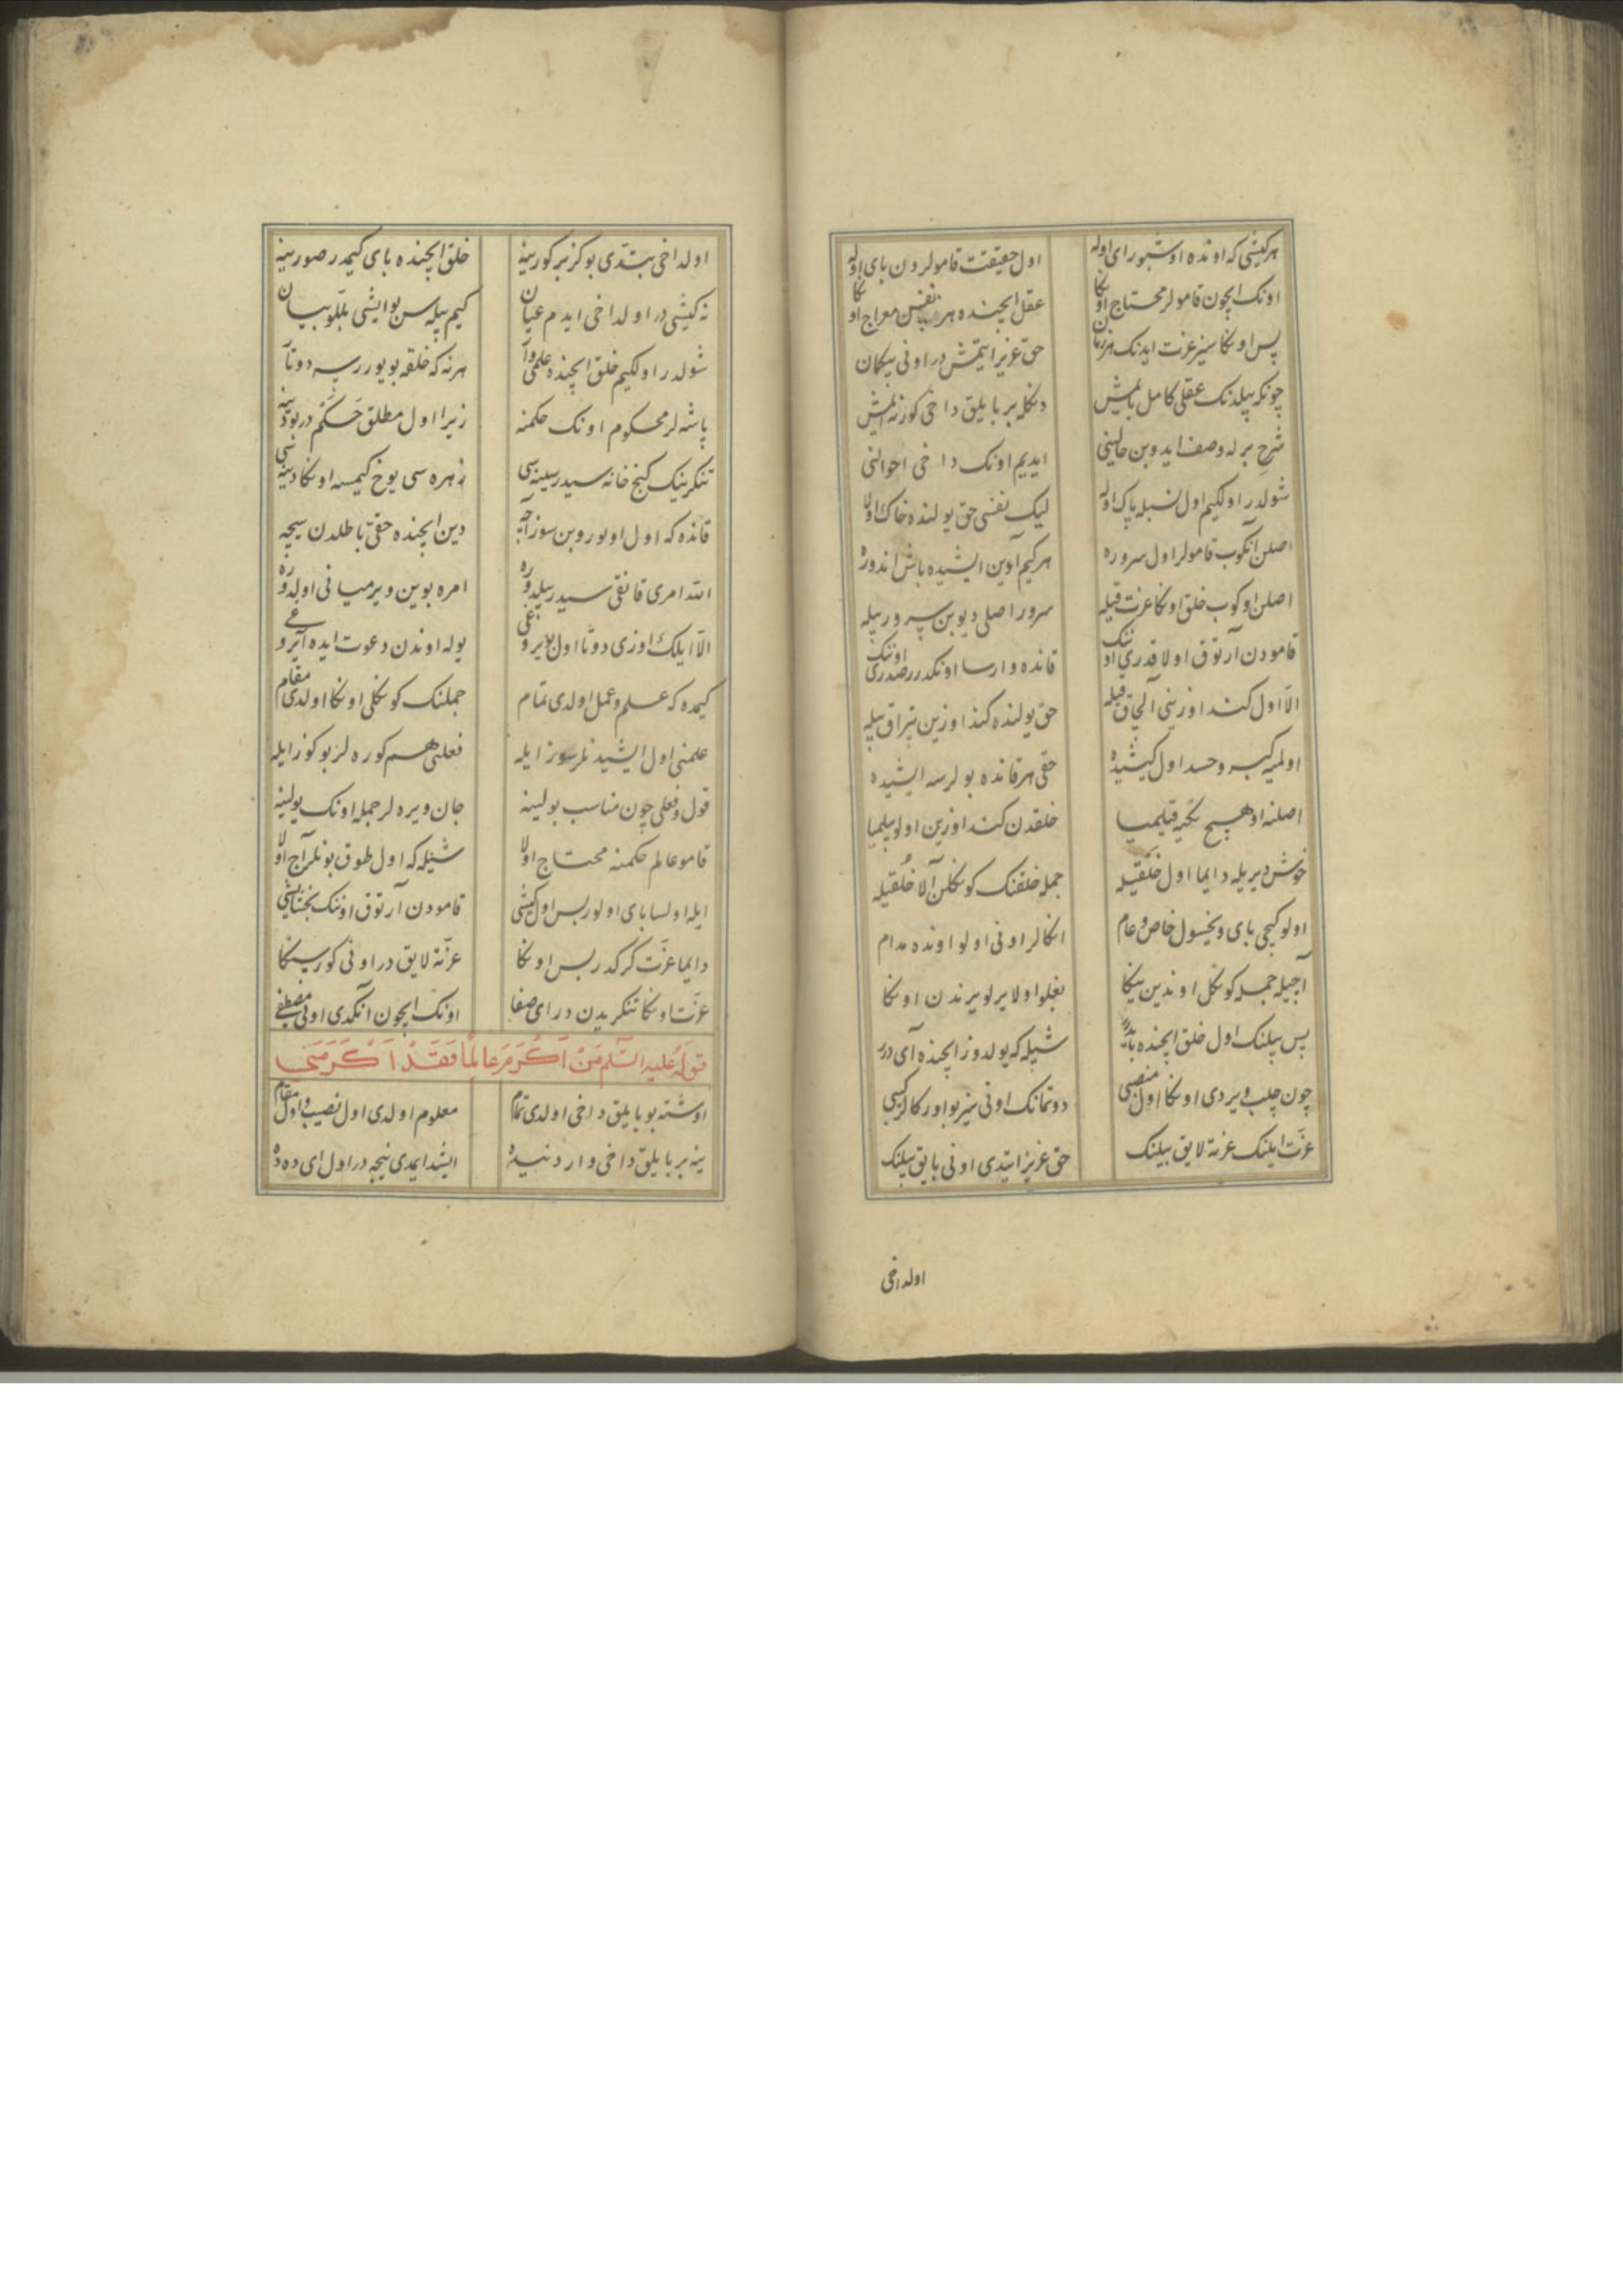 هر کیشی که اونده اوشبو رای اوله اول حقیقت قامولردن بای اوله
اونک ایچون قامولر محتاج اوکا عقل ایچنده هر نفس معراج اوکا
پس اوکا سیز عزت ایدنک هر زمان حق عزیز ایتمش در اونی بیکمان
چونکه بیلدنک عقلی کامل بایمش دنکله بر بایلیق داخی کوزنمش
شرح برله وصف ایدوبن حالینی ایدیم اونک داخی احوالنی
شولدر اولکیم اول نسبله پاک اوله لیک نفسی حق یولنده خاک اولا
اصلن آنکوب قامولر اول سروره هرکیم آدین ایشیده باش اندوره
اصلن اوکوب خلق اوکا عزت قیله سرور اصلی دیوبن سرور بیله
قامودن آرتوق اولا قدری اوننک قانده وارسا اونکدر صدری اوننک
الا اول کند اوزینی آلچاق قیله حق یولنده کند اوزین تپراق بیله
اولمیه کبر و حسد اول کیشیده حقی هر قانده بولرسه ایشیده
اصلنه اوهیچ تکیه قیلمیا خلقدن کند اوزین اولو بیلمیا
خوش دیریله دایما اول خلقیله جمله خلقنک کوکلن آلا خُلقیله
اولو کیچی بای ویخسول خاص و عام انکالر اونی اولو اونده مدام
آچیله جمله کوکل اوندین یکا بغلو اولا یرلو یرندن اوکا
پس بیلنک اول خلق ایچنده بایدر شیله که یولدوز ایچنده آی درر
چون چلب ویردی اوکا اول منصبی دوتمانک اونی سیز بو اورکالر کبی
عزت ایلنک عزته لایق بیلنک حق عزیز ایتدی اونی بایق بیلنک
اولداخی
اولداخی بتدی بو کز بر کورینه خلق ایچنده بای کیمدر صورینه
نه کیشی در اولداخی ایدم عیان کیم بیله سن بو ایشی بللو بیان
شولدر اولکیم خلق ایچنده علمی وآ هرنه که خلقه بویورر سه دوتآ
پاشه لر محکوم اونک حکمنه زیرا اول مطلق حَکَم در بو دینه
تنکرینک کنج خانه سیدر سینه سی زهره سی یوخ کیمسه اوکا دینه سی
قانده که اول اولوروبن سوز آچه دین ایچنده حقی باطلدن سیچه
الله امری قانقی سیدر بیلدوره امره بوین ویرمیانی اولدوره
الا ایلک اوزی دوتا اول بویروغی یوله اوندن دعوت ایده آیروغی
کیمده که علم و عمل اولدی تمام جملنک کوکلی اوکا اولدی مقام
علمنی اول ایشیدنلر سوز ایله فعلنی هم کوره لر بو کوز ایله
قول و فعلی چون مناسب بولینه جان ویره لر جمله اونک یولینه
قامو عالم حکمنه محتاج اولا شیله که اول طوق بونلر آج اولا
ایله اولسا بای اولور بس اول کیشی قامودن آرتوق اوننک بخشایشی
دایما عزت کرکدر بس اوکا عزته لایق در اونی کورسنکا
عزت اوکا تنکریدن در ای صفا اونک ایچون آنکدی اونی مصطفی
قوله علیه السّلم مَنْ اَکْرَمَ عالِمًا فَقَدْ اَکْرَمَنی
اوشته بو بایلیق داخی اولدی تمام معلوم اولدی اول نصیب و اول مقام
ینه بر بایلیق داخی وار دنیده ایشد ایمدی نیجه در اول ای دده